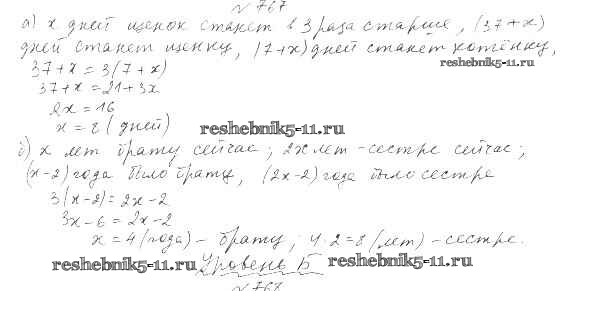 № 767
а) x дней щенок станет в 3 раза старше, (37+x)
дней станет щенку, (7+x) дней станет котёнку,
37+x=3(7+x)
reshebnik5-11.ru
37+x=21+3x
2x=16
x=8 (дней)
reshebnik5-11.ru
б) x лет брату сейчас; 2x лет - сестре сейчас;
(x-2) года было брату, (2x-2) года было сестре
3(x-2)=2x-2
3x-6=2x-2
x=4 (года) - брату; 4·2=8 (лет) - сестре.
reshebnik5-11.ru Уровень Б reshebnik5-11.ru
№ 768